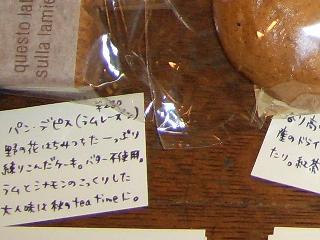 questo la
sulla lamie
¥230
パン・デピス(ラムレーズン)
野の花はちみつたーっぷり
練りこんだケーキ。バター不使用。
ラムとシナモンのこっくりした
大人味は秋のtea timeに。
量のドライ
たり。紅茶